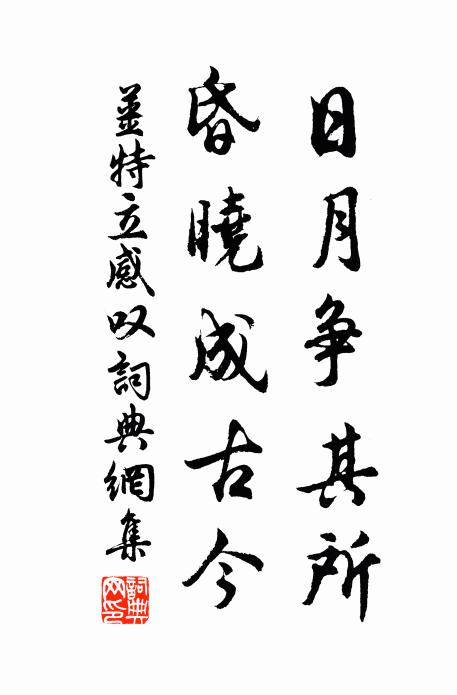 日月争其所
昏曉成古今
姜特立感叹詞典網集
詞典网印